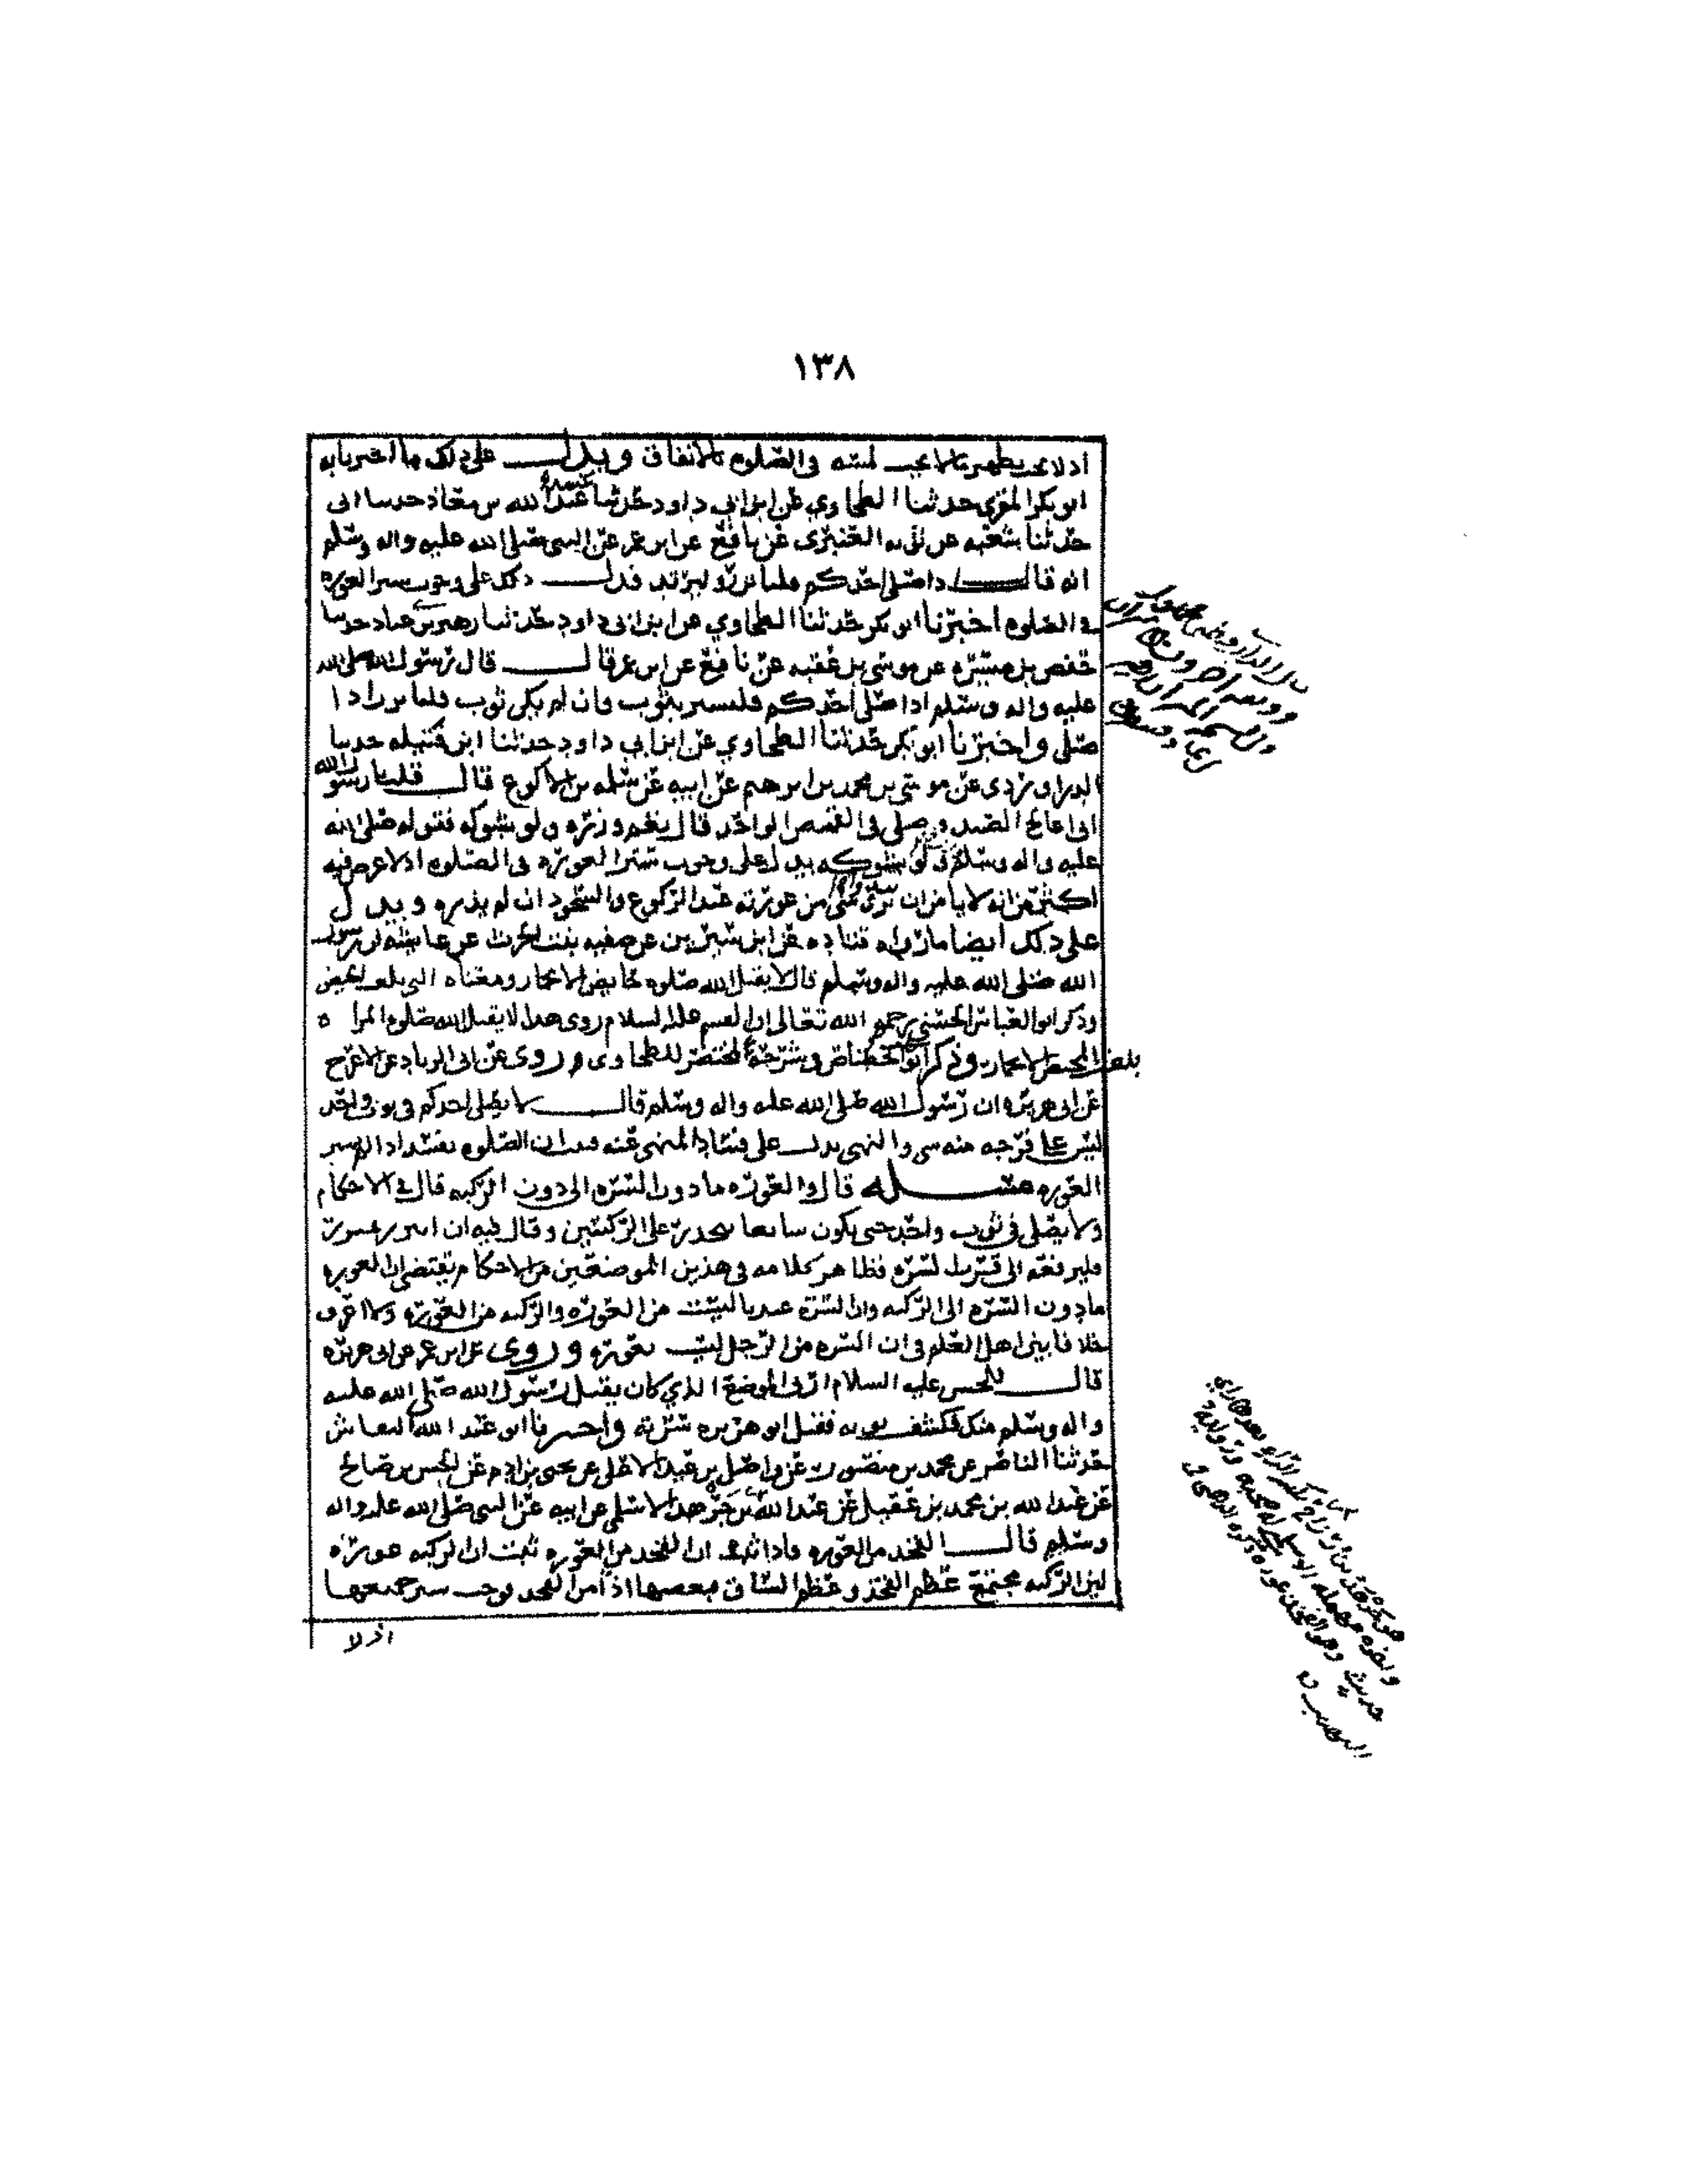 ١٣٨
اذ لا يجب تطهير مالا يجب لبسه في الصلوه بالاتفاق ويدل على ذلك ما اخبرنا به
ابو بكر المقري حدثنا الطحاوي عن ابن ابي داود حدثنا عبيد الله بن معاذ حدثنا ابي
حدثنا شعبه عن توبه العنبري عن نافع عن ابن عمر عن النبي صلى الله عليه واله وسلم
انه قال اذا صلى احدكم فلياتزر وليرتد فدل ذلك على وجوب ستر العوره
في الصلوه اخبرنا ابو بكر حدثنا الطحاوي عن ابن ابي داود حدثنا زهير بن عباد حدثنا
حفص بن ميسره عن موسى بن عقبه عن نافع عن ابن عمر قال قال رسول الله صلى الله
عليه واله وسلم اذا صلى احدكم فليستتر بثوب فان لم يكن ثوب فلياتزر اذا
صلى واخبرنا ابو بكر حدثنا الطحاوي عن ابن ابي داود حدثنا ابن قتيله حدثنا
الدراوردي عن موسى بن محمد بن ابرهيم عن ابيه عن سلمه بن الاكوع قال قلت يا رسول الله
اني اعالج الصيد وصلي في القميص الواحد قال نعم وزره ولو بشوكه فقوله صلى الله
عليه واله وسلم ولو بشوكه يدل على وجوب ستر العوره في الصلوه اذ لا غرض فيه
اكثر من انه لا يامن ان ترى شي من عورته عند الركوع والسجود ان لم يزره ويدل
على ذلك ايضا ما رواه قتاده عن ابن سيرين عن صفيه بنت الحرث عن عائشه ان رسول
الله صلى الله عليه واله وسلم قال لا يقبل الله صلوه حايض الا بخمار ومعناه التي بلغت الحيض
وذكر ابو العباس الحسني رحمه الله تعالى ان القسم عليه السلام روى هذا لا يقبل الله صلوه المراه
بلغت المحيض الا بخمار وذكر ابو بكر الجصاص في شرحه المختصر للطحاوي وروى عن ابي الزناد عن الاعرج
عن ابي هريره ان رسول الله صلى الله عليه واله وسلم قال لا يصلي احدكم في ثوب واحد
ليس على فرجه منه شي والنهي يدل على فساد المنهي عنه فدل ان الصلوه تفسد اذا لم يستر
العوره مسئله قال والعوره ما دون السره الى دون الركبه قال في الاحكام
ولا يصلى في ثوب واحد حتى يكون سابغا ينحدر على الركبتين وقال فيه ان اتزر بميزر
فليرفعه الى قريب السره فظاهر كلامه في هذين الموضعين من الاحكام يقتضي ان العوره
ما دون السره الى الركبه وان السره عندنا ليست من العوره والركبه من العوره ولا اعرف
خلافا بين اهل العلم في ان السره من الرجل ليست بعوره وروى عن ابن عمر عن ابي هريره
قال للحسن عليه السلام ارني الموضع الذي كان يقبل رسول الله صلى الله عليه
واله وسلم منك فكشف ثوبه فقبل ابو هريره سرته واخبرنا ابو عبد الله النقاش
حدثنا الناصر عن محمد بن منصور عن واصل بن عبد الاعلى عن يحيى بن ادم عن الحسن بن صالح
عن عبد الله بن محمد بن عقيل عن عبد الله بن جرهد الاسلمي عن ابيه عن النبي صلى الله عليه واله
وسلم قال الفخذ من العوره فاذا ثبت ان الفخذ من العوره ثبت ان الركبه عوره
لان الركبه مجتمع عظم الفخذ وعظم الساق بعضها اذ امر الفخذ يوجب ستر جميعها
اذ لا